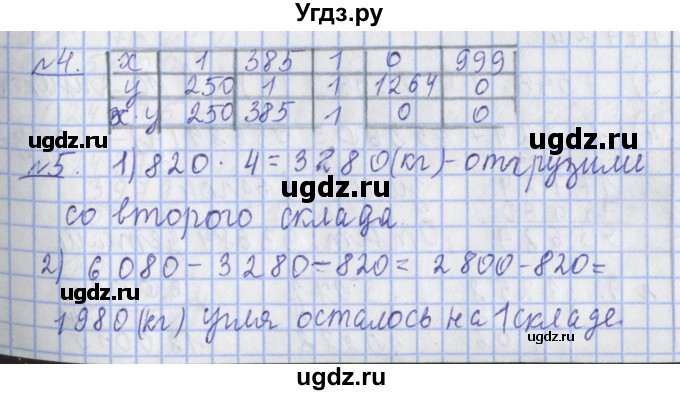 Угдз.ру
№4. x 1 385 1 0 999
y 250 1 1 1264 0
x·y 250 385 1 0 0
ugdz.ru ugdz.ru
№5. 1) 820 · 4 = 3280 (кг) - отгрузили
ugdz.ru
со второго склада
ugdz.ru ugdz.ru
2) 6 080 - 3 280 - 820 = 2 800 - 820 =
ugdz.ru
1 980 (кг) угля осталось на 1 складе.
ugdz.ru ugdz.ru
ugdz.ru